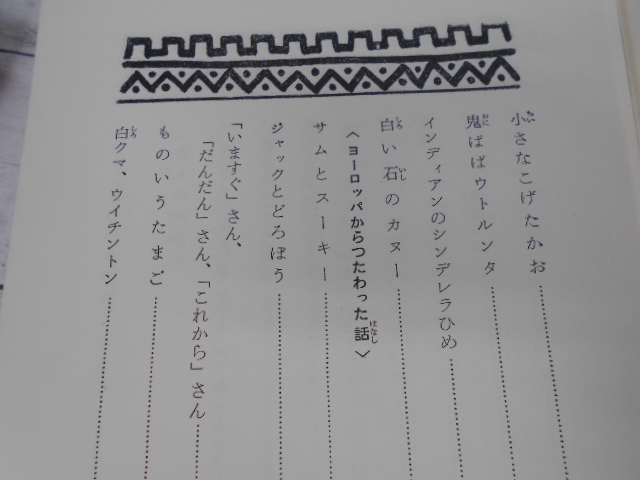 小さなこげたかお
鬼ばばウトルンタ
インディアンのシンデレラひめ
白い石のカヌー
〈ヨーロッパからつたわった話〉
サムとスーキー
ジャックとどろぼう
「いますぐ」さん、
「だんだん」さん、「これから」さん
ものいうたまご
白クマ、ウイチントン